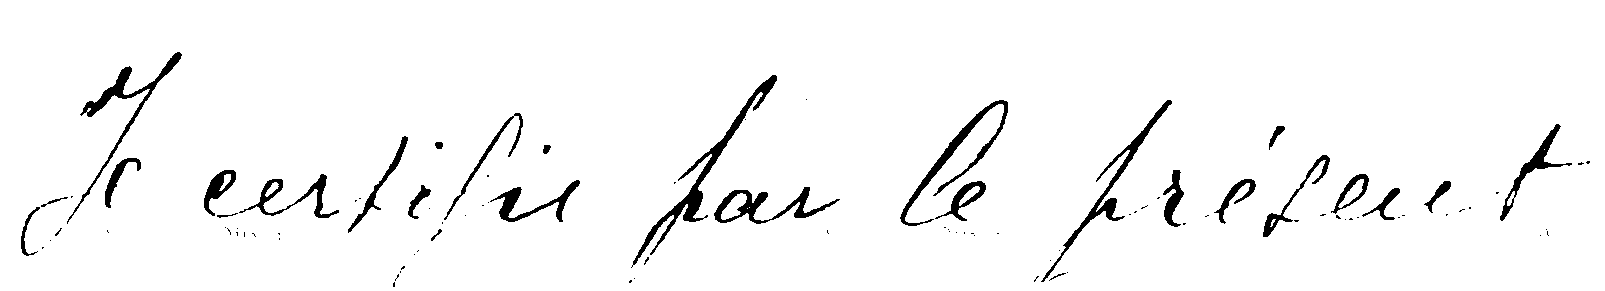 Je certifie par le présent